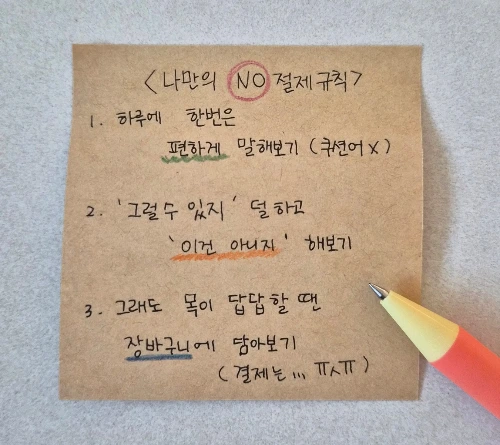 <나만의 NO 절제규칙>
1. 하루에 한번은
편하게 말해보기 (쿠션어 X)
2. '그럴 수 있지' 덜 하고
'이건 아니지' 해보기
3. 그래도 목이 답답할 땐
장바구니에 담아보기
(결제는... ㅠㅅㅠ)